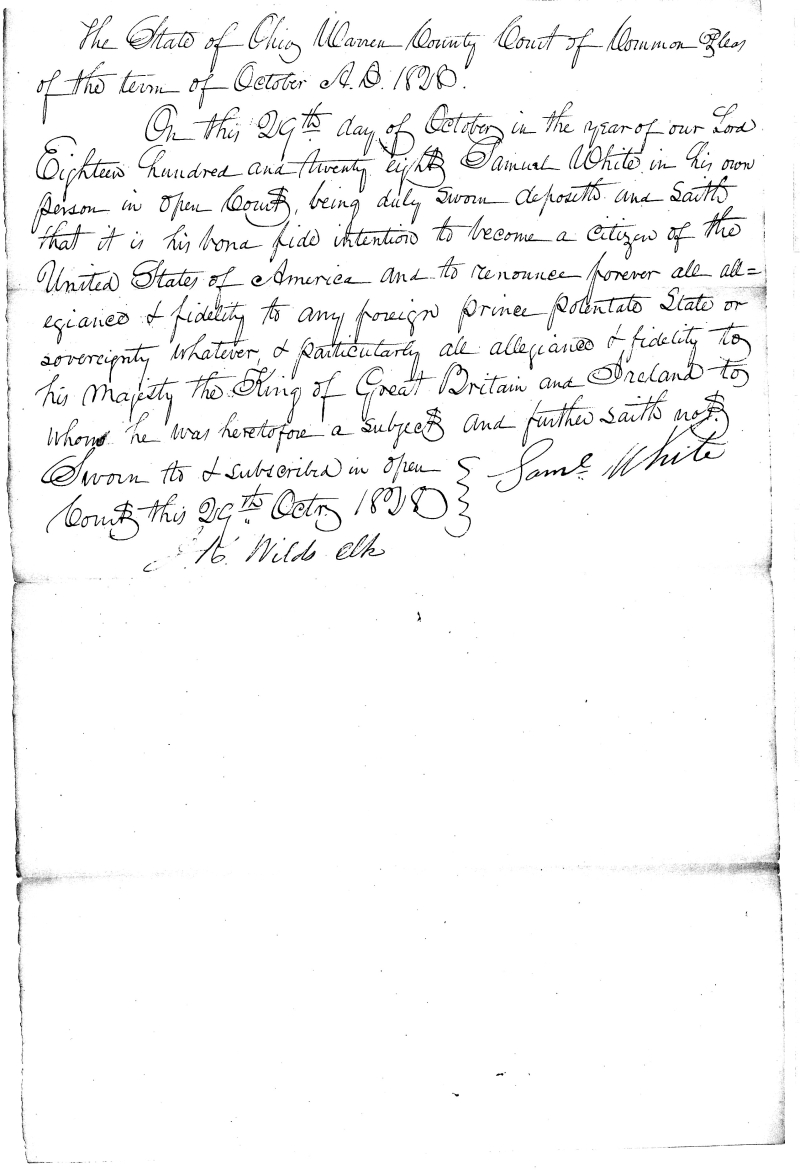 The State of Ohio Warren County Court of Common Pleas
of the term of October A.D. 1828.
On this 29th day of October in the year of our Lord
Eighteen hundred and twenty eight Samuel White in his own
person in open Court, being duly sworn deposeth and saith
that it is his bona fide intention to become a citizen of the
United States of America and to renounce forever all all=
egiance & fidelity to any foreign prince potentate State or
sovereignty whatever, & particularly all allegiance & fidelity to
his Majesty the King of Great Britain and Ireland to
whom he was heretofore a subject and further saith not.
Sworn to & subscribed in open
Court this 29th Octr 1828
Saml White
K. Wilds clk